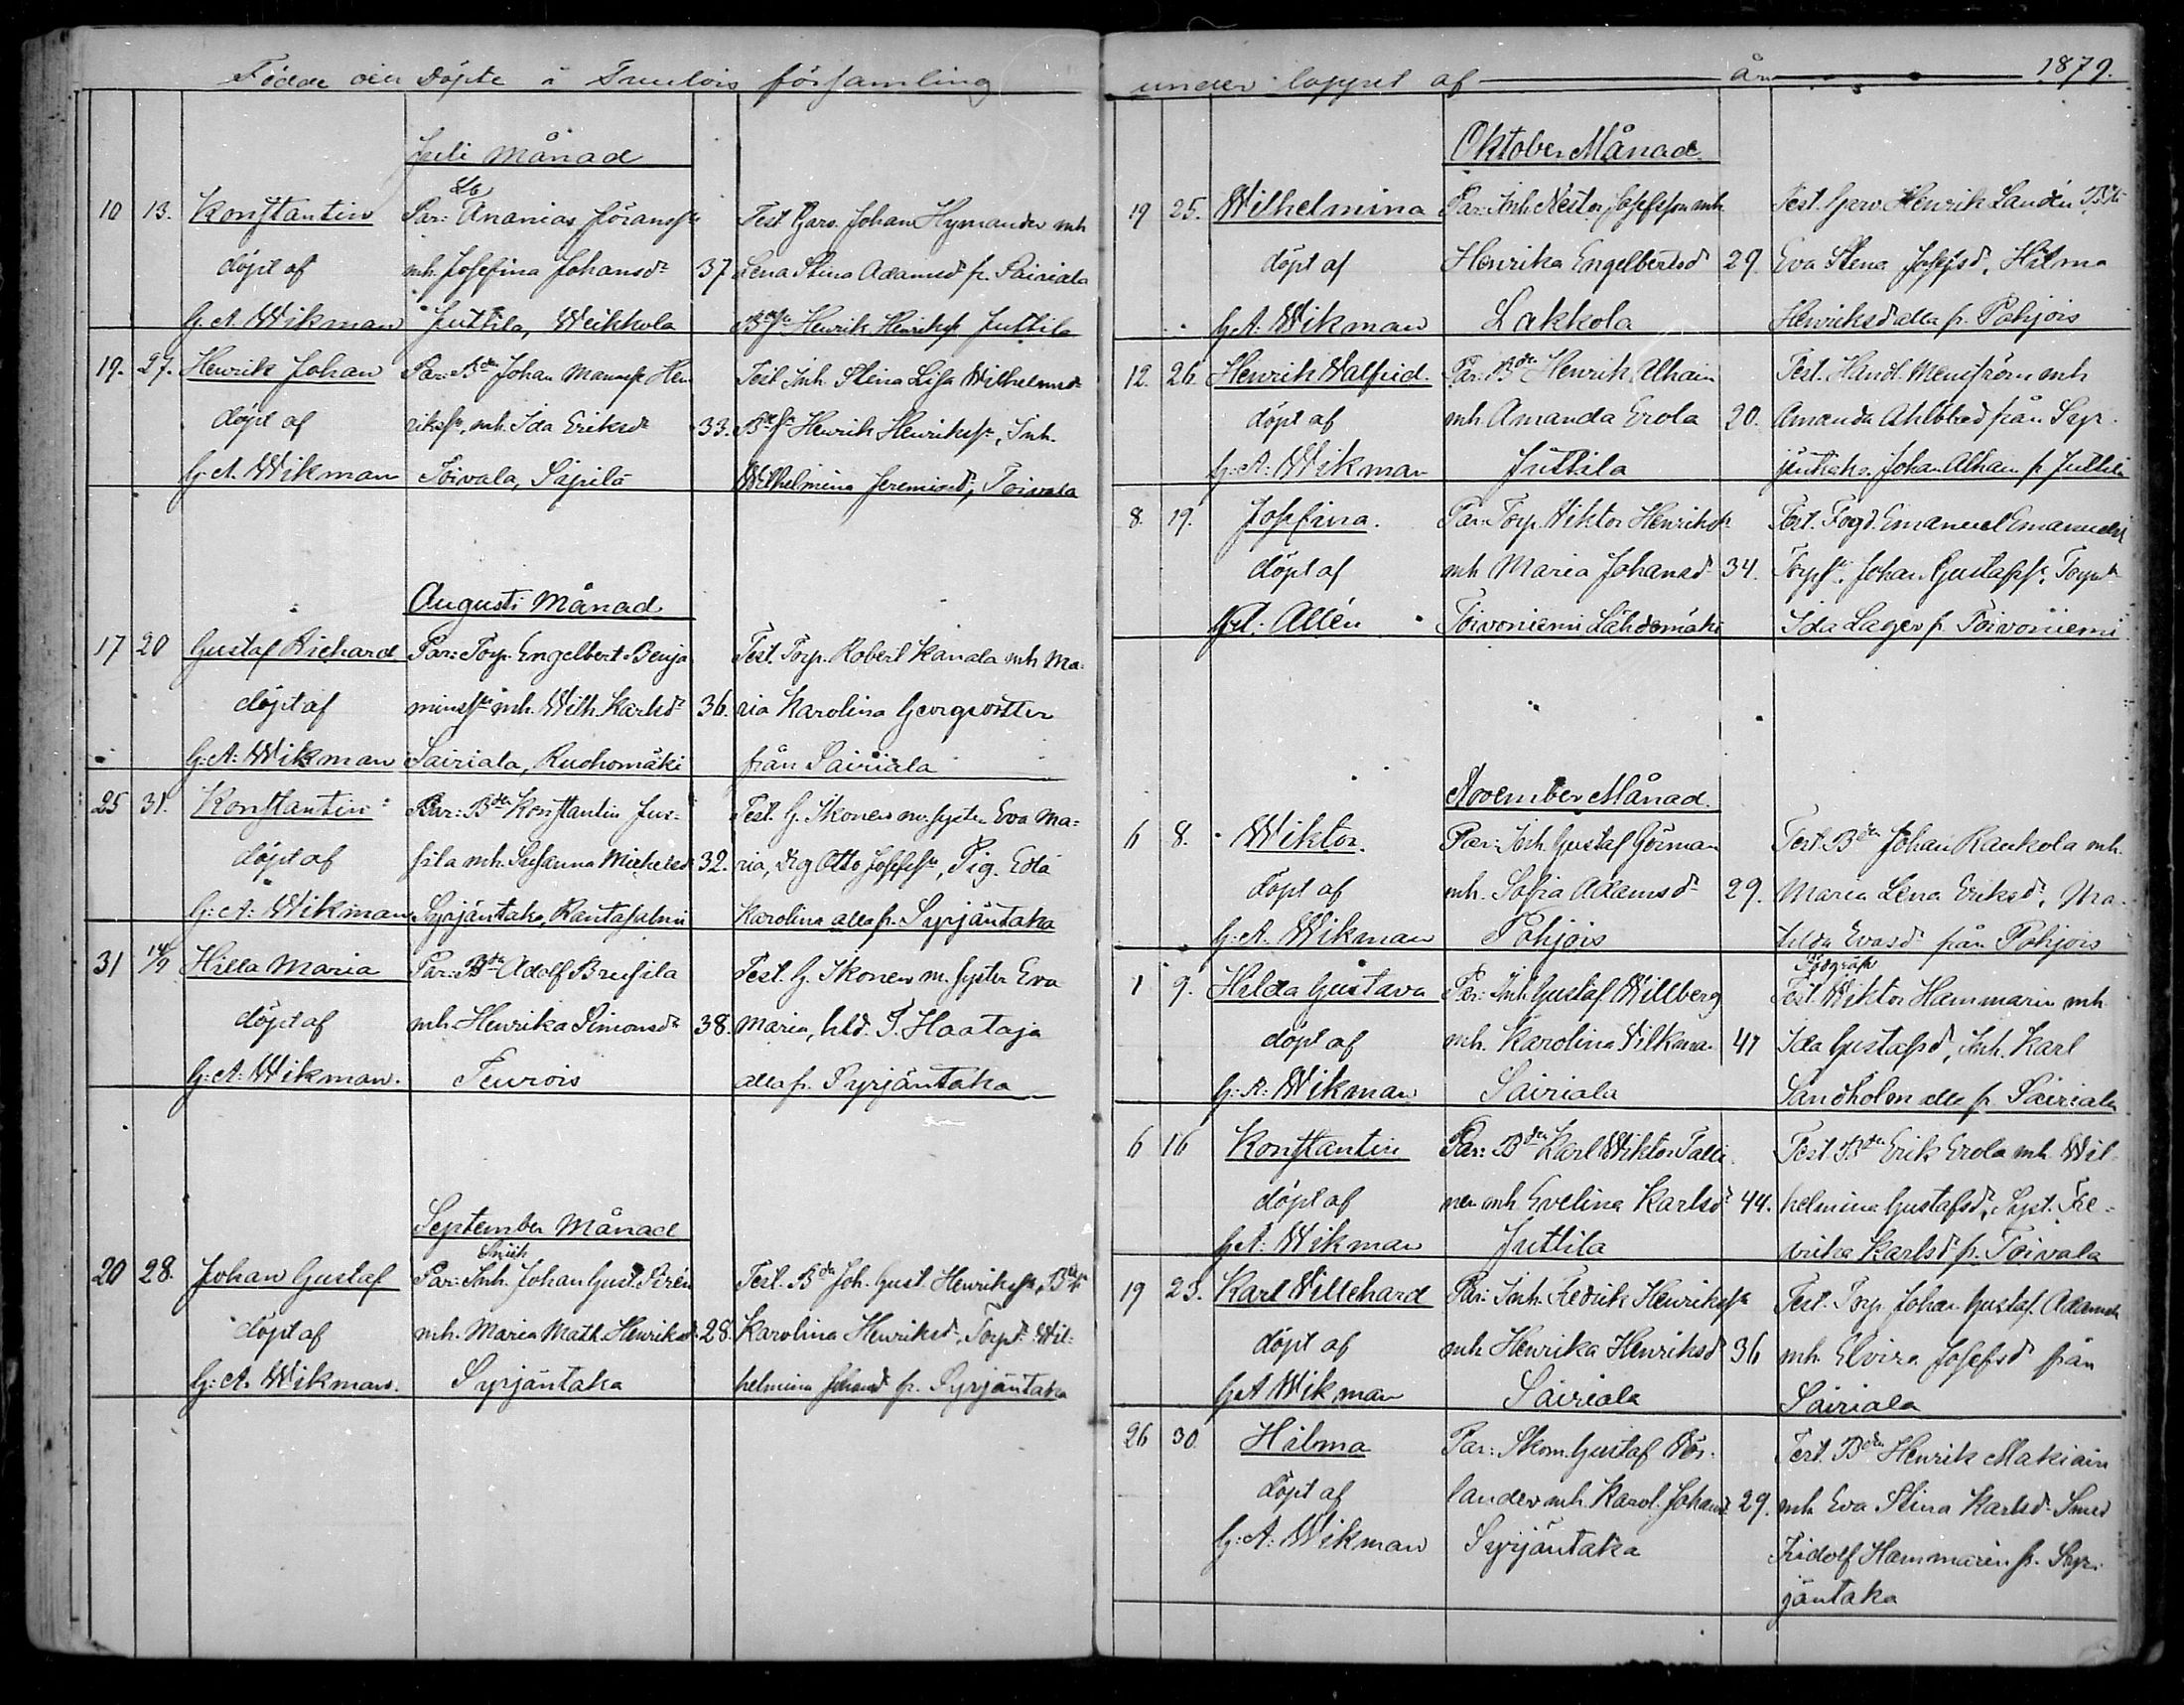 Födde och Döpte i Tuulois församling
Juli Månad
10 13. Konstantin Par: Ananias Göransson Test Garv. Johan Nymander mh
döpt af mh. Josefina Johansdr 37 Lena Stina Adamsdr fr. Sairiala
G. A. Wikman Juttila, Weikkola Henrik Henrikss Juttila
19. 27. Henrik Johan Par: Bde Johan Manass Hen Test. Inh. Stina Lisa Wilhelmsdr
döpt af rikss, mh. Ida Eriksdr 33. Henrik Henrikss, Inh.
G. A. Wikman Toivala, Sipilä Wilhelmina Jeremiasd, Toivala
Augusti Månad
17 20 Gustaf Richard Par: Torp. Engelbert Benja Test. Torp. Robert Kanala mh Ma-
döpt af minss mh. Wilh. Karlsdr 36. ria Karolina Georgsdotter
G: A: Wikman Sairiala, Ruohomäki från Sairiala
25 31. Konstantin Par: Bde Konstantin Jus- Test. G. Ikonen m. syster Eva Ma=
döpt af sila mh. Susanna Michelsdr 32. ria, Drg Otto Josefss, Pig. Eda
G: A: Wikman Syrjäntaka, Rantasalmi Karolina alla fr. Syrjäntaka
31 14/9 Hilla Maria Par: Bde Adolf Brusila Test. G. Ikonen m. syster Eva
döpt af mh. Henrika Simonsdr 38. Maria, hld. T. Haataja
G: A: Wikman. Teurois alla fr. Syrjäntaka
September Månad
Snick
20 28. Johan Gustaf Par: Inh. Johan Gust. Test. Bde Joh. Gust. Henrikss,
döpt af mh. Maria Math. Henriksdr 28. Karolina Henriksdr, Torpd Wil=
G: A. Wikman. Syrjäntaka helmina Johansd fr. Syrjäntaka
under loppet af år 1879.
Oktober Månad.
19 25. Wilhelmina Par: Inh. Nestor Josefsson mh. Test. Garv. Henrik Landén
döpt af Henrika Engelbertsd 29. Eva Stena Josefsd, Hilma
G. A. Wikman Lakkola Henriksd alla fr. Pohjois
12. 26. Henrik Walfrid. Par: Bde Henrik Alhain Test. Handl. Menström mh
döpt af mh. Amanda Erola 20. Amanda Ahlblad från Syr-
G: A: Wikman Juttila jäntaka, Johan Alhain fr Juttila
8. 19. Josefina. Par: Torp. Viktor Henrikss Test. Fogd. Emanuel Emanuelss
döpt af mh Maria Johansd 34. Torps. Johan Gustafss, Torpd
Allén Toivoniemi Lähdemäki Ida Lager fr Toivoniemi
November Månad.
6 8. Wiktor. Par: Inh. Gustaf Görman Test. Bde Johan Raukola mh.
döpt af mh. Sofia Adamsdr 29. Maria Lena Eriksd, Ma-
G. A. Wikman Pohjois tilda Evasd från Pohjois
1 9. Hilda Gustava Par: Inh. Gustaf Willberg Test. Wiktor Hammarin mh
döpt af mh. Karolina Silkman 41 Ida Gustafsd, Inh. Karl
G: A: Wikman Sairiala Sandholm alla fr. Sairiala
6 16 Konstantin Par: Bde Karl Wiktor Talli- Test. Bde Erik Erola mh Wil-
döpt af nen mh Evelina Karlsdr 44. helmina Gustafsd, Syst. Fre=
G. A: Wikman Juttila drika Karlsd fr. Toivala
19 23. Karl Willehard Par: Inh. Fredrik Henrikss Test. Torp. Johan Gustaf Adamss
döpt af mh Henrika Henriksd 36 mh. Elvira Josefsd från
G. A Wikman Sairiala Sairiala
26 30. Hilma Par: Skom. Gustaf Test. Bde Henrik Makiain
döpt af lander mh. Karol. Johansd 29. mh Eva Stina Karlsd. Smed
G: A: Wikman Syrjäntaka Fridolf Hammarén fr. Syr-
jäntaka